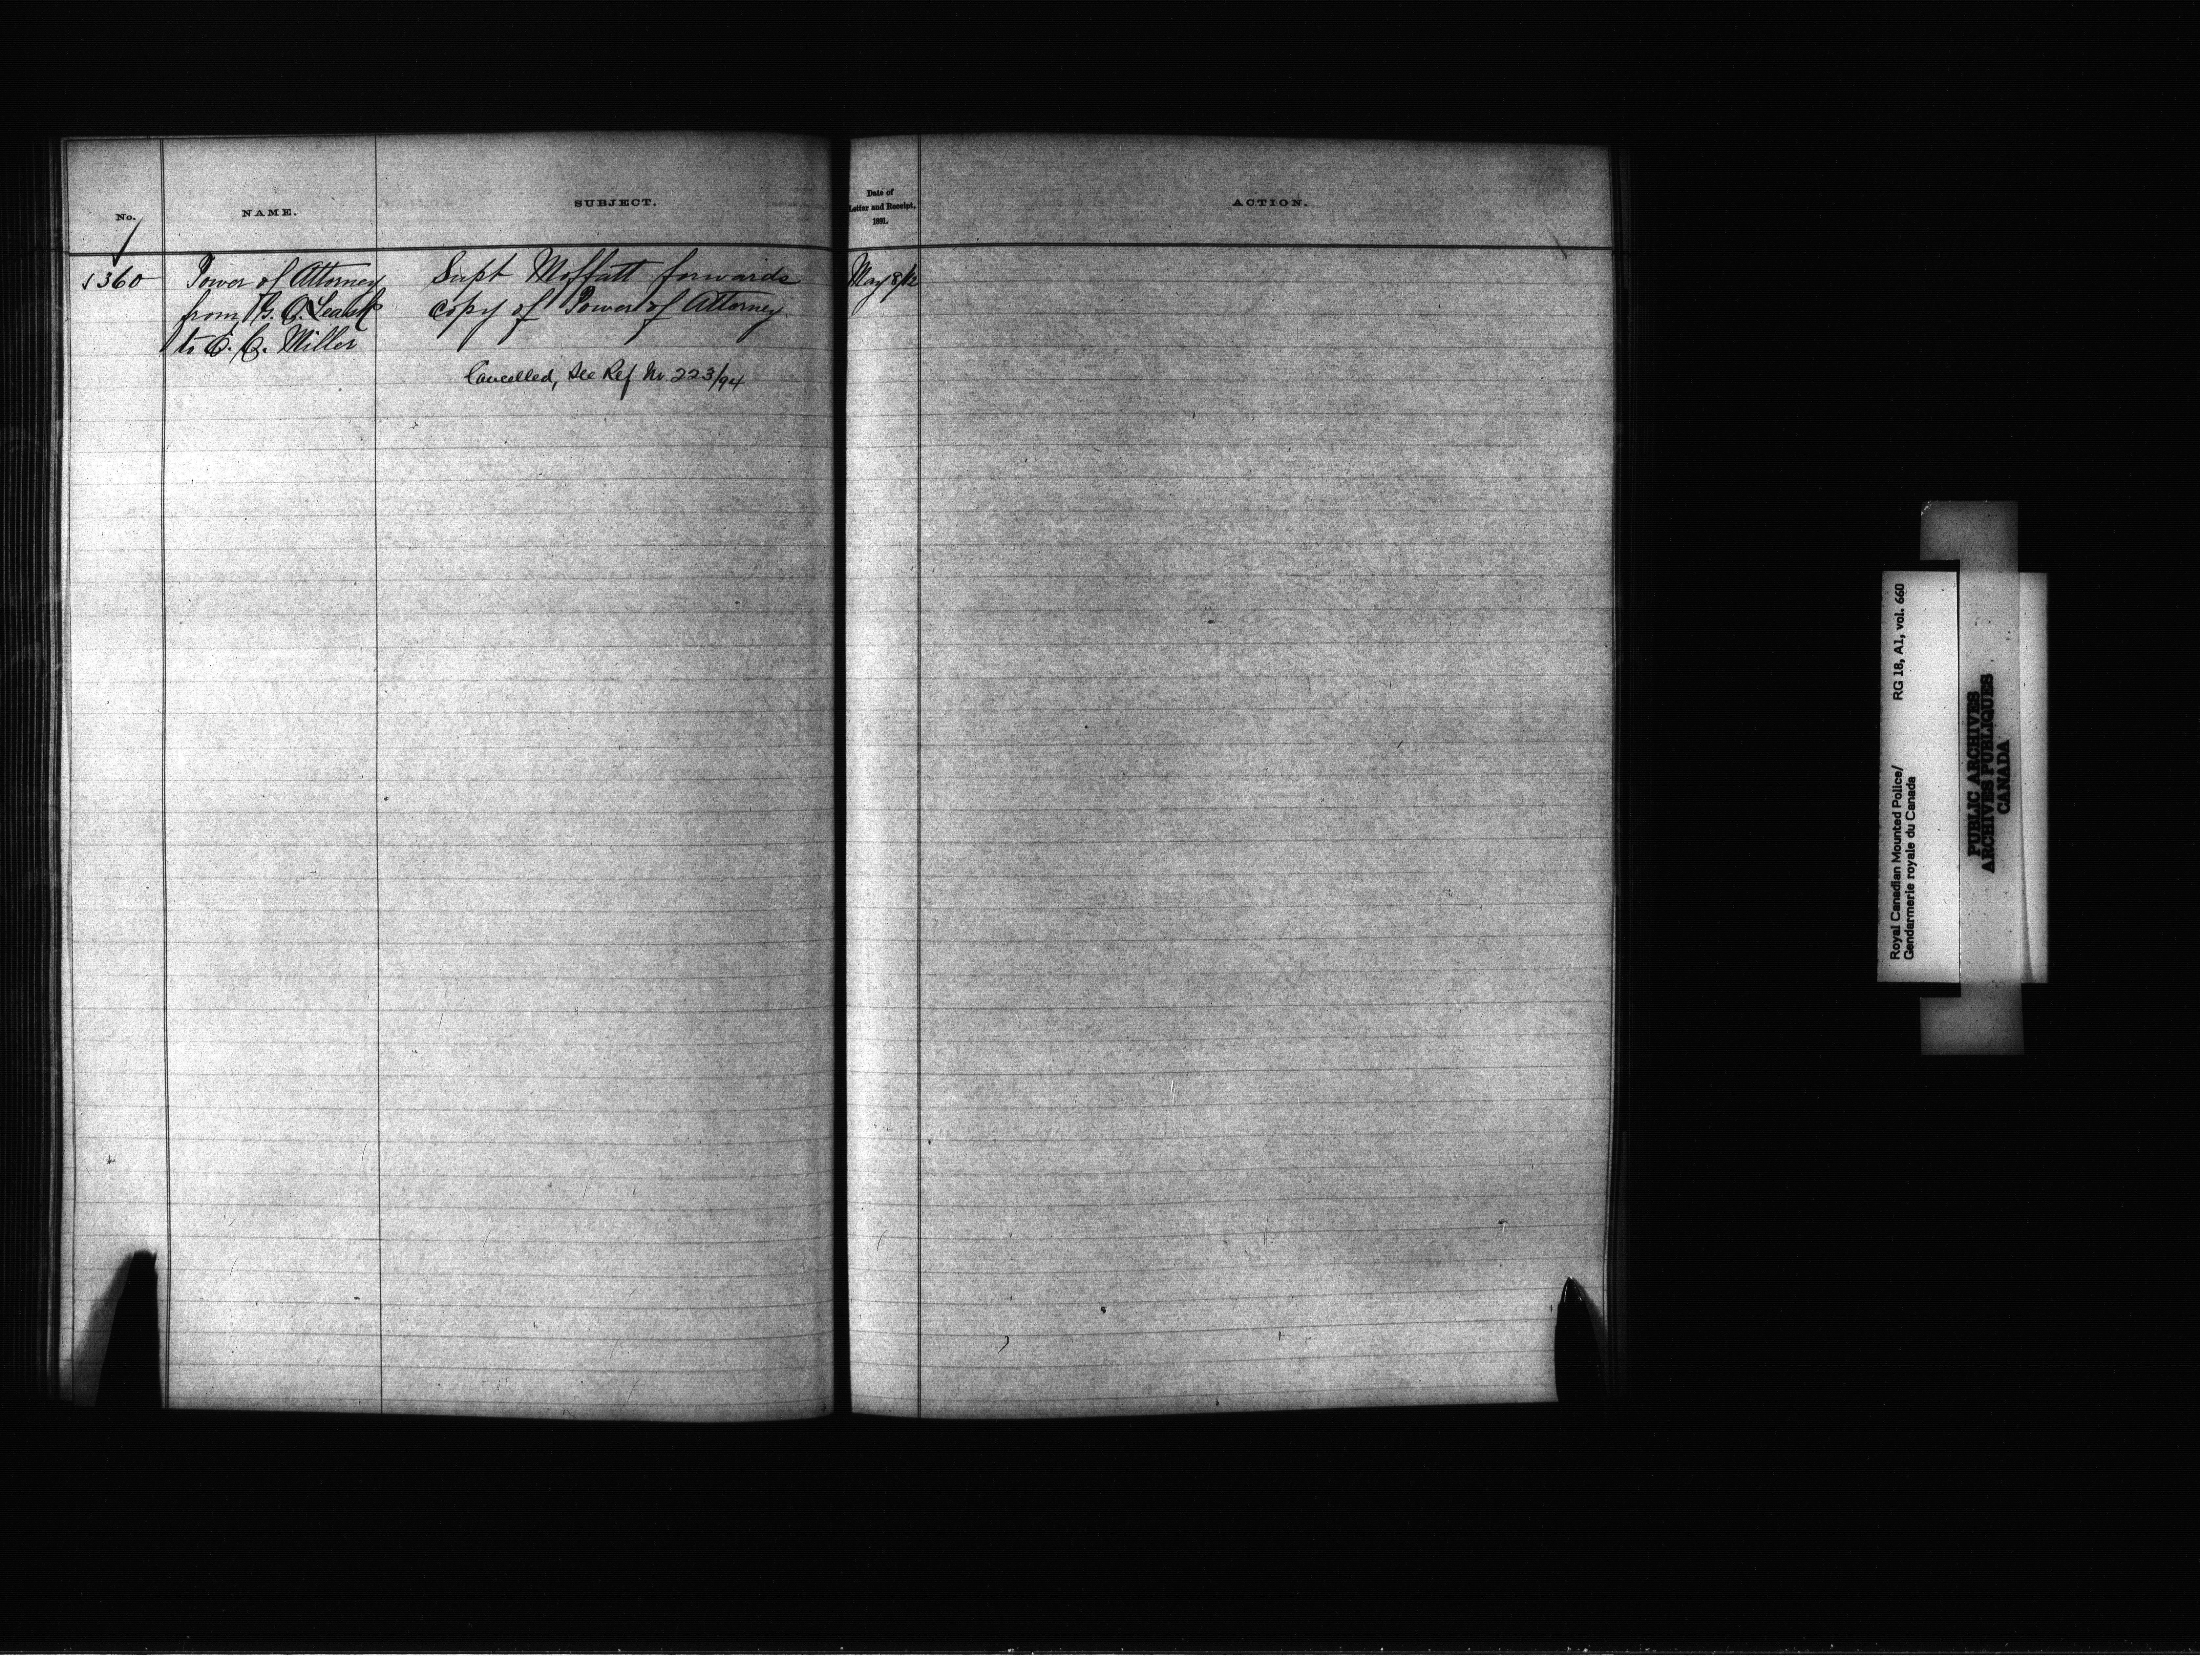 No.
NAME.
SUBJECT.
Date of
Letter and Receipt,
1891.
ACTION.
360
Power of Attorney
from
to Miller
Supt Moffatt forwards
copy of Power of Attorney.
Cancelled, See Ref No 223/94
May 8/12
Royal Canadian Mounted Police/ RG 18, A1, vol. 660
Gendarmerie royale du Canada
PUBLIC ARCHIVES
ARCHIVES PUBLIQUES
CANADA